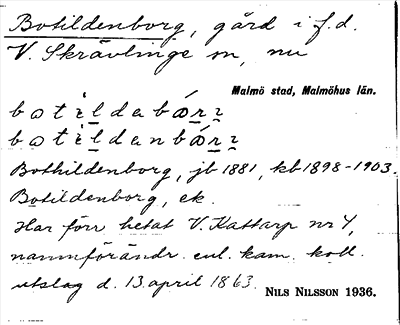 Botildenborg, gård i f.d.
V. Skrävlinge sn, nu
Malmö stad, Malmöhus län.
Bothildenborg, jb 1881, kb 1898-1903.
Botildenborg, ek.
Har förr hetat V. Kattarp nr 4,
namnförändr. enl. kam. koll.
utslag d. 13 april 1863.
NILS NILSSON 1936.